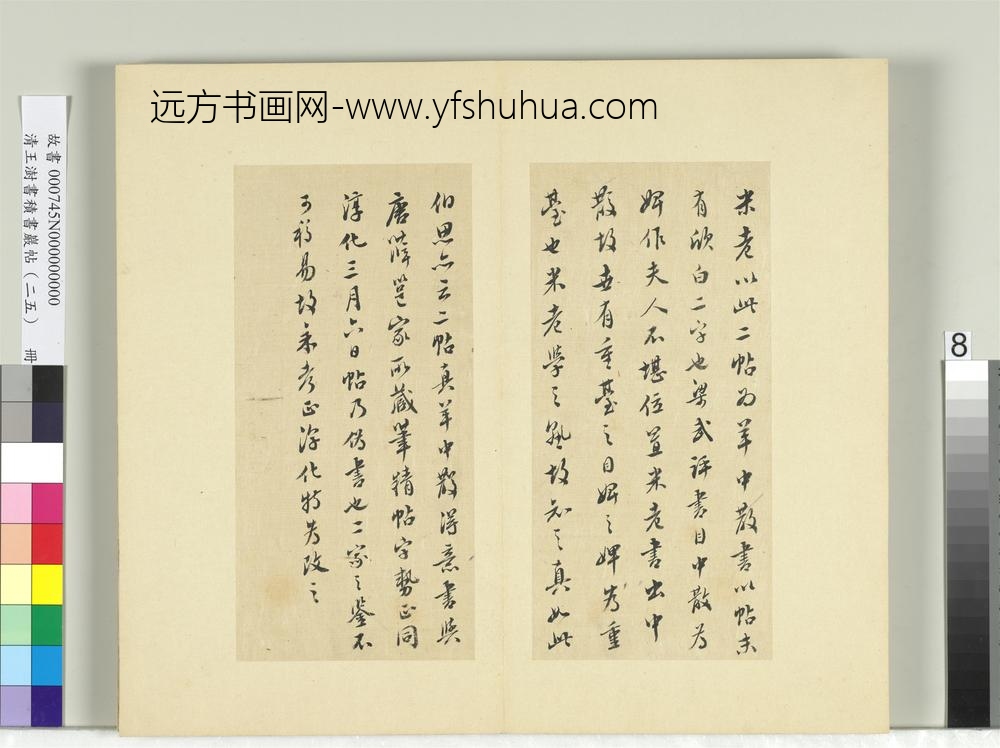 远方书画网-www.yfshuhua.com
米老以此二帖为羊中散書以帖末
有欣白二字也梁武評書目中散为
婢作夫人不堪位置米老書出中
散故世有重臺之目婢之婢为重
臺也米老學之熟故知之真如此
伯思亦云二帖真羊中散得意書與
唐薛邕家所藏筆精帖字勢正同
淳化三月六日帖乃偽書也二家之鑒不
可移易故余考正淳化特为改之
故書 000745N000000000
清王澍書積書巖帖（二五） 冊
8